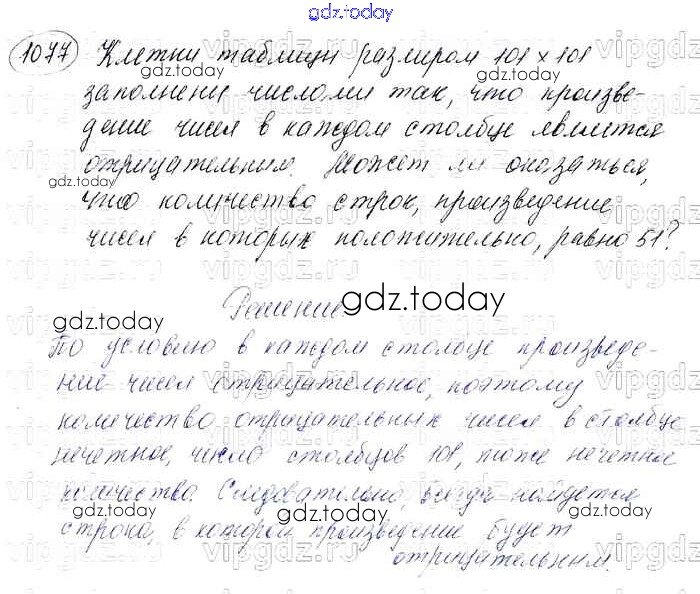 gdz.today
1077 Клетки таблицы размером 101 × 101
заполнены числами так, что произве-
дение чисел в каждом столбце является
отрицательным. Может ли оказаться,
что количество строк, произведение
чисел в которых положительно, равно 51?
Решение.
По условию в каждом столбце произведе-
ние чисел отрицательное, поэтому
количество отрицательных чисел в столбце
нечетное, число столбцов 101, тоже нечетное
количество. Следовательно, всегда найдется
строка, в которой произведение будет
отрицательным.